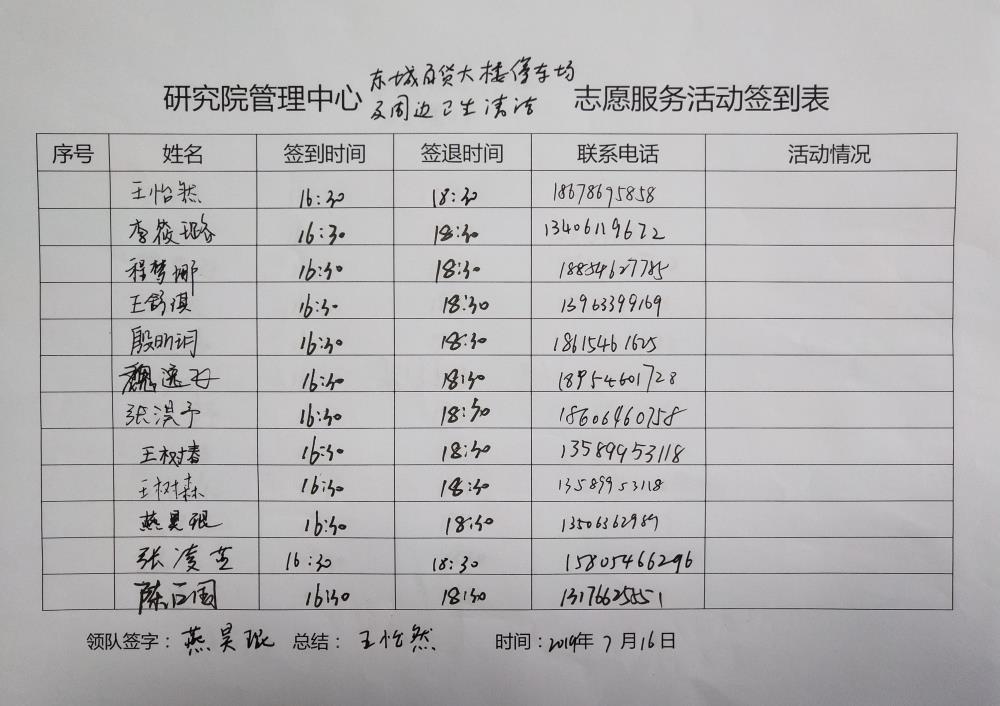 东城百货大楼停车场
研究院管理中心 及周边卫生清洁 志愿服务活动签到表
序号 姓名 签到时间 签退时间 联系电话 活动情况
王怡然 16:30 18:30 18678695858
李筱璐 16:30 18:30 13406119672
程梦娜 16:30 18:30 18854627785
王舒琪 16:30 18:30 13963399169
殷明玥 16:30 18:30 18615461625
魏逸 16:30 18:30 18954601728
张淏予 16:30 18:30 18606460758
王树春 16:30 18:30 13589953118
王树森 16:30 18:30 13589953118
燕昊琨 16:30 18:30 13506362989
张凌芝 16:30 18:30 15805466296
陈国 16:30 18:30 13176625851
领队签字: 燕昊琨 总结: 王怡然 时间: 2019年 7月16日